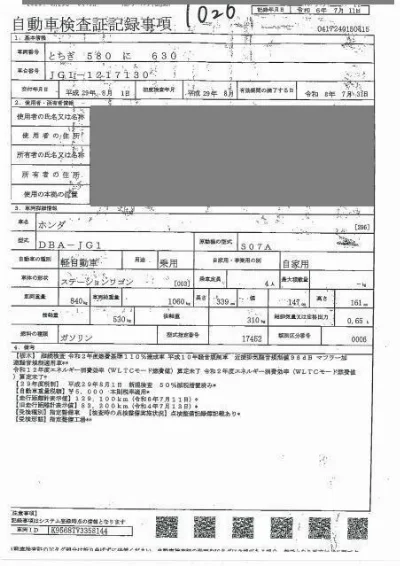 1020
自動車検査証記録事項
記録年月日 令和 6年 7月 11日
1．基本情報
車両番号 とちぎ 580 に 630
車台番号 JG1-1217130
交付年月日 平成 29年 8月 1日 初度検査年月 平成 29年 8月 有効期間の満了する日 令和 8年 7月 31日
2．使用者・所有者情報
使用者の氏名又は名称
使用者の住所
所有者の氏名又は名称
所有者の住所
使用の本拠の位置
3．車両詳細情報
車名 ホンダ
型式 DBA-JG1 原動機の型式 S07A
自動車の種別 軽自動車 用途 乗用 自家用・事業用の別 自家用
車体の形状 ステーションワゴン [003] 乗車定員 4人 最大積載量 -kg
車両重量 840kg 車両総重量 1060kg 長さ 339cm 幅 147cm 高さ 161cm
前軸重 530kg 後軸重 310kg 総排気量又は定格出力 0.65L
燃料の種類 ガソリン 型式指定番号 17452 類別区分番号 0006
4．備考
【栃木】 継続検査 令和2年度燃費基準110%達成車 平成10年騒音規制車 近接排気騒音規制値 マフラー加
速騒音規制適用車
令和12年度エネルギー消費効率（WLTCモード燃費値）算定未了 令和2年度エネルギー消費効率（WLTCモード燃費値
）算定未了
平成29年8月1日 新規検査 50%
【自動車重量税額】 ¥5,000 本則税率適用
【走行距離計表示値】 129,100km（令和6年7月11日）
【旧走行距離計表示値】 （令和4年7月13日）
【受検種別】 指定整備車 【検査時の点検整備実施状況】 点検整備記録簿記載あり
【受検形態】 指定整備工場
注意事項
記載事項はシステム登録時点の情報となります
車両ID K95687Y3358144